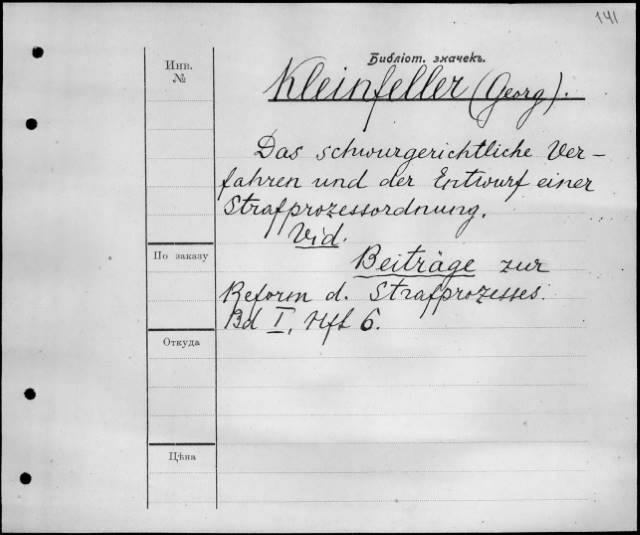 141
Библіот. значекъ.
Инв.
№
Kleinfeller (Georg).
Das schwurgerichtliche Ver-
fahren und der Entwurf einer
Strafprozessordnung.
Vid.
По заказу
Beiträge zur
Reform d. Strafprozesses.
Bd I, Hft 6.
Откуда
Цѣна